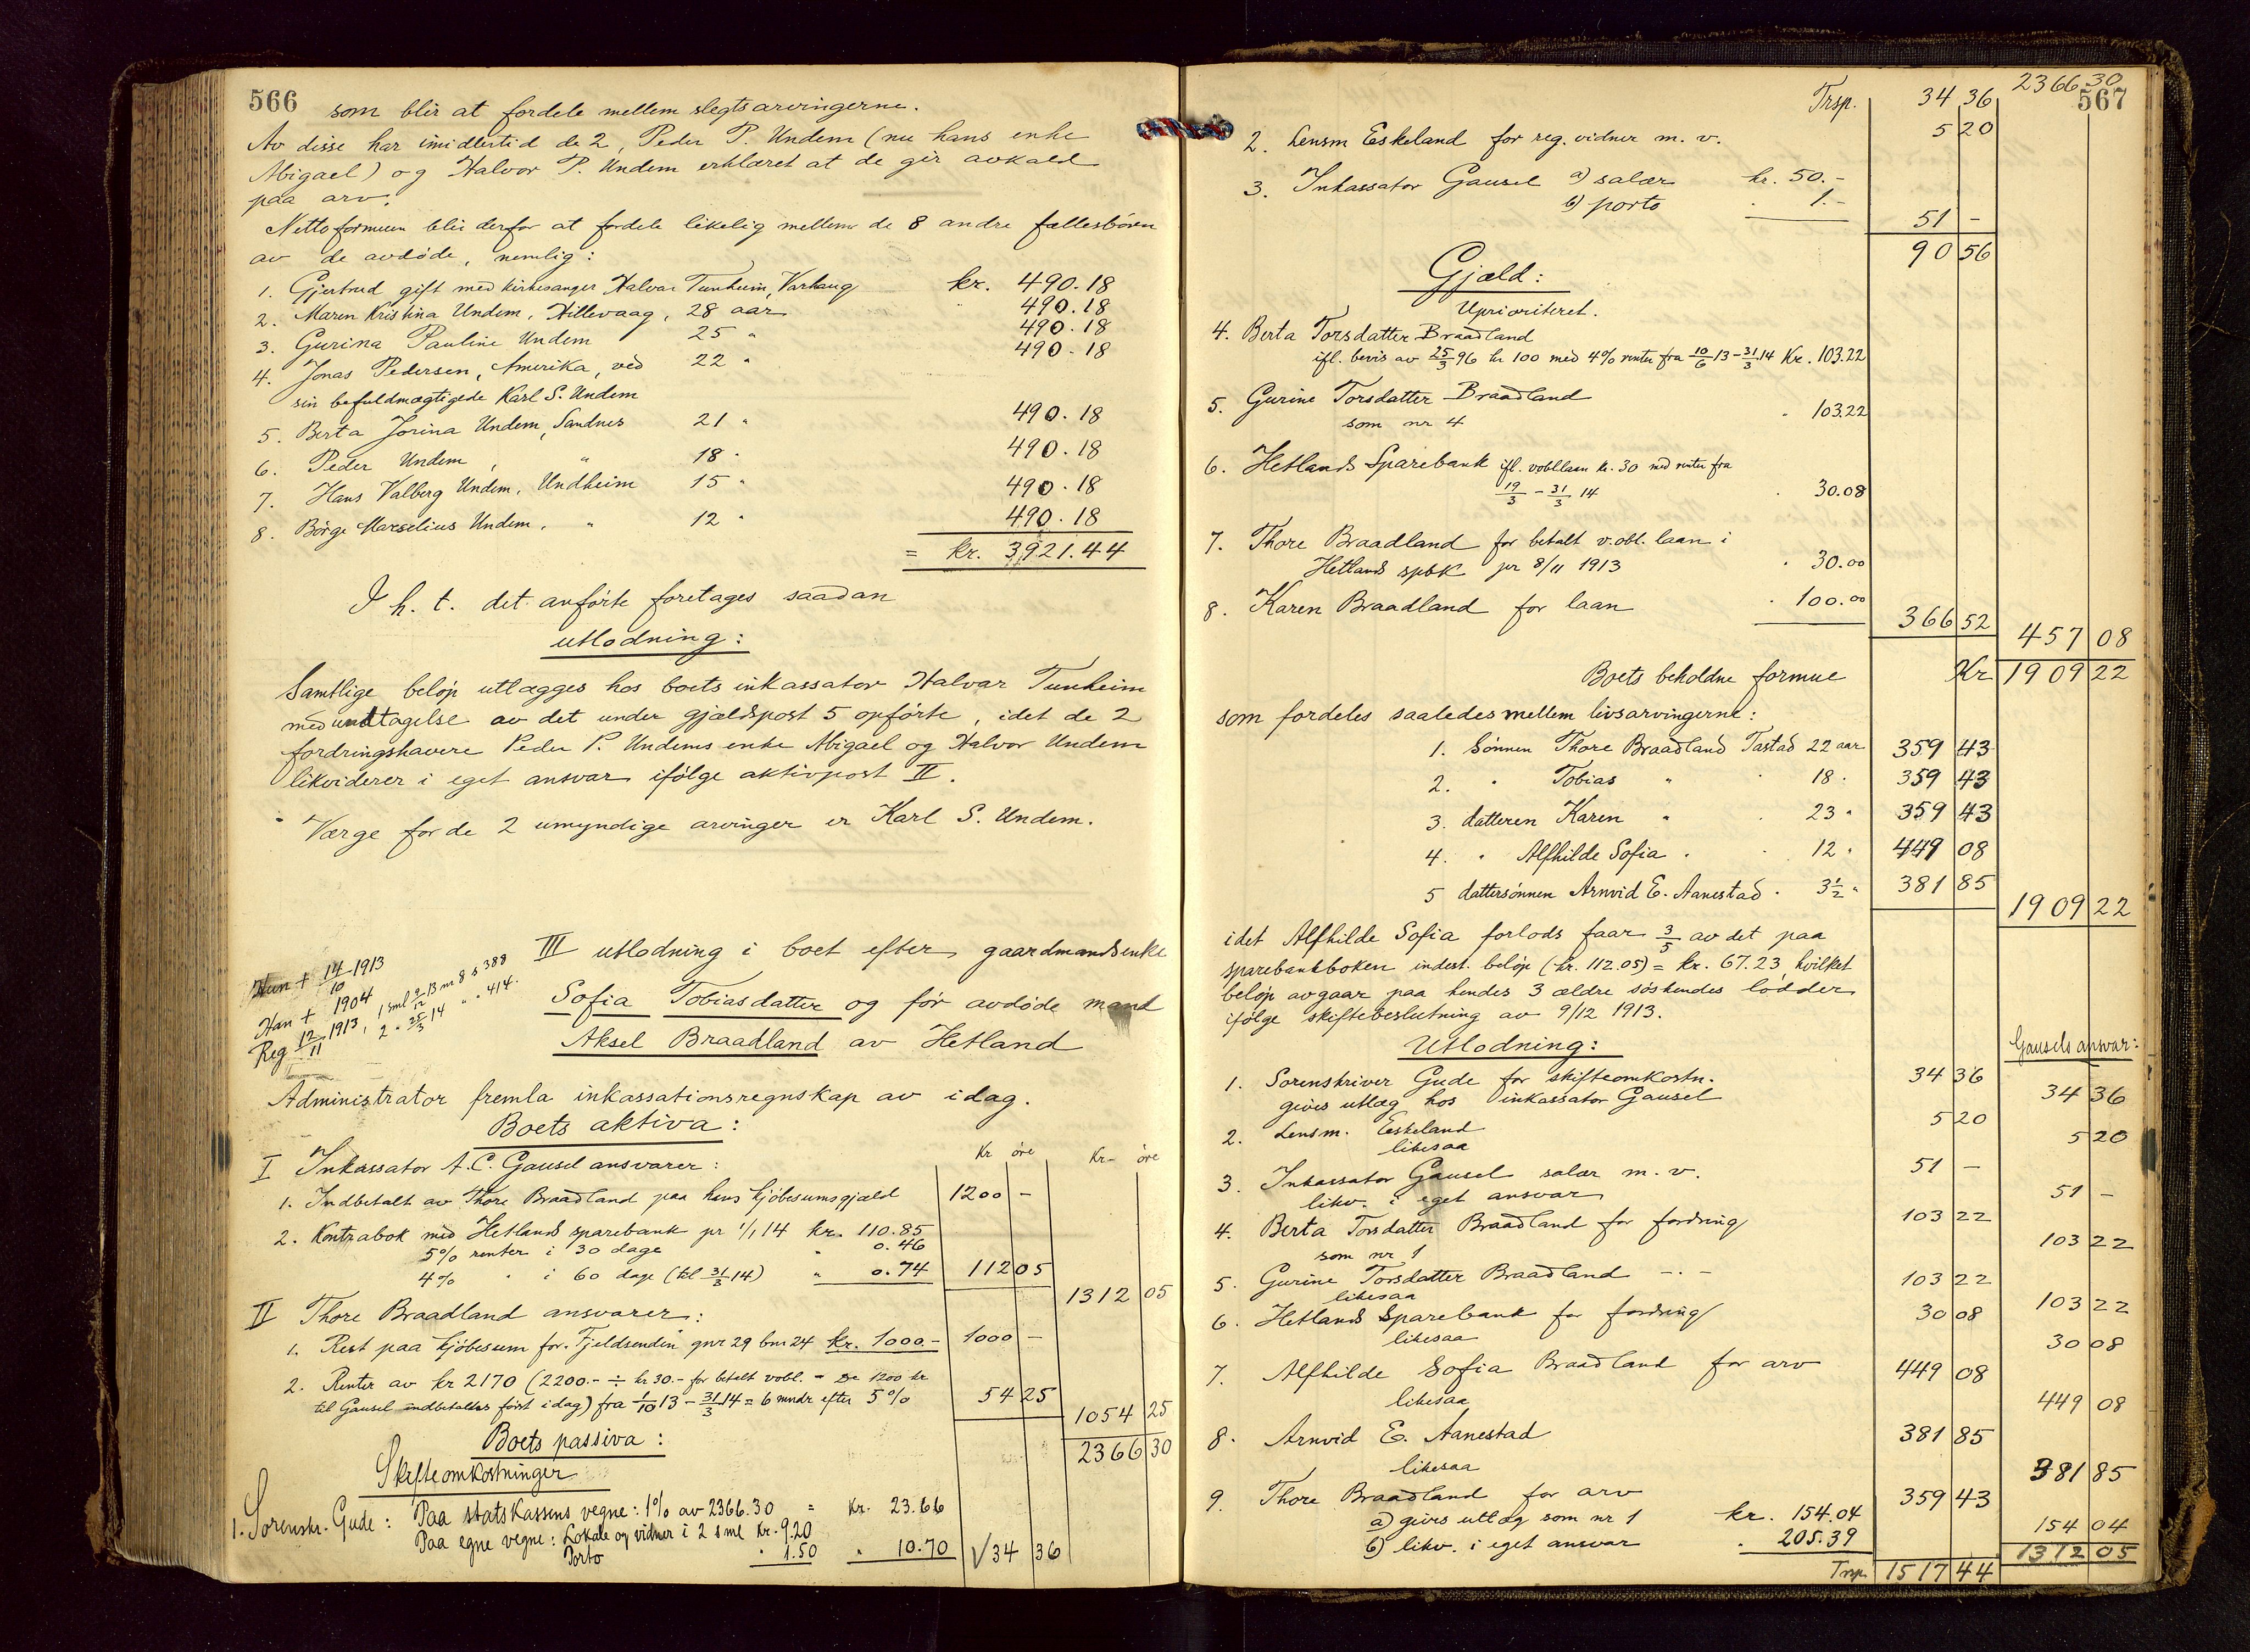 566
som blir at fordele mellem slegtsarvingerne.
Av disse har imidlertid de 2, Peder P. Undem (nu hans enke
Abigael) og Halvor P. Undem erklæret at de gir avkald
paa arv.
Nettoformuen blir derfor at fordele likelig mellem de 8 andre fællesbörn
av de avdøde, nemlig:
1. Gjertrud gift med kirkesanger Halvar Tunheim, Varhaug kr. 490.18
2. Maren Kristina Undem, Hillevaag, 28 aar 490.18
3. Gurina Pauline Undem 25 " 490.18
4. Jonas Pedersen, Amerika, ved 22 " 490.18
sin befuldmægtigede Karl S. Undem
5. Berta Jorina Undem, Sandnes 21 " 490.18
6. Peder Undem, " 18 " 490.18
7. Hans Valberg Undem, Undheim 15 " 490.18
8. Börge Marselius Undem, " 12 " 490.18
= kr. 3921.44
I h. t. det anförte foretages saadan
utlodning:
Samtlige beløp utlægges hos boets inkassator Halvar Tunheim
med undtagelse av det under gjældspost 5 opförte, idet de 2
fordringshavere Peder P. Undems enke Abigael og Halvor Undem
likviderer i eget ansvar ifölge aktivpost II.
Værge for de 2 umyndige arvinger er Karl S. Undem.
III utlodning i boet efter gaardmandsenke
Sofia Tobiasdatter og før avdøde mand
Aksel Braadland av Hetland
Hun + 14/10 1913
Han + 1904
Reg 12/11 1913, 1 sml 9/12 13 m 8 s 388
2 " 25/3 14 " " 414.
Administrator fremla inkassationsregnskap av idag.
Boets aktiva:
Kr öre Kr öre
I Inkassator A. C. Gausel ansvarer:
1. Indbetalt av Thore Braadland paa hans kjöbesumsgjæld 1200 –
2. Kontrabok med Hetlands sparebank pr 1/1 14 kr. 110.85
5% renter i 30 dage " 0.46
4% " i 60 dage (til 31/3 14) " 0.74 112 05
1312 05
II Thore Braadland ansvarer:
1. Rest paa kjöbesum for "Fjeldsenden" gnr 29 bnr 24 kr. 1000.– 1000 –
2. Renter av kr 2170 (2200.– ÷ kr 30.– for betalt vobl. – De 1200 kr
til Gausel indbetaltes først idag) fra 1/10 13 – 31/3 14 = 6 mndr efter 5% 54 25
1054 25
Boets passiva: 2366 30
Skifteomkostninger
1. Sorenskr. Gude: Paa statskassens vegne: 1% av 2366.30 = Kr. 23.66
Paa egne vegne: Lokale og vidner i 2 sml Kr. 9.20
Porto " 1.50 " 10.70 √34 36
567
Trsp. 34 36 2366 30
2. Lensm Eskeland for reg. vidner m. v. 5 20
3. Inkassator Gausel a) salær kr. 50.–
b) porto " 1.– 51 –
90 56
Gjæld:
Uprioritert.
4. Berta Torsdatter Braadland
ifl. bevis av 25/3 96 kr 100 med 4% renter fra 10/6 13 – 31/3 14 Kr. 103.22
5. Gurine Torsdatter Braadland
som nr 4 " 103.22
6. Hetlands Sparebank ifl. vobllaan kr. 30 med renter fra
19/3 – 31/3 14 " 30.08
7. Thore Braadland for betalt v.obl. laan i
Hetlands spbk pr 8/11 1913 " 30.00
8. Karen Braadland for laan " 100.00
366 52 457 08
Boets beholdne formue Kr 1909 22
som fordeles saaledes mellem livsarvingerne:
1. Sönnen Thore Braadland Tastad 22 aar 359 43
2. " Tobias " " 18 " 359 43
3. datteren Karen " " 23 " 359 43
4. " Alfhilde Sofia " " 12 " 449 08
5 dattersönnen Arnvid E. Aanestad " 3½ " 381 85
1909 22
idet Alfhilde Sofia forlods faar 3/5 av det paa
sparebankboken indest. beløp (kr. 112.05) = kr. 67.23, hvilket
beløp avgaar paa hendes 3 ældre söskendes lodder
ifølge skiftebeslutning av 9/12 1913.
Utlodning: Gausels ansvar:
1. Sorenskriver Gude for skifteomkostn. 34 36
gives utlæg hos inkassator Gausel 34 36
2. Lensm. Eskeland 5 20
likesaa 5 20
3. Inkassator Gausel salær m. v. 51 –
likv. i eget ansvar 51 –
4. Berta Torsdatter Braadland for fordring 103 22
som nr 1 103 22
5. Gurine Torsdatter Braadland – " – 103 22
likesaa 103 22
6. Hetlands Sparebank for fordring 30 08
likesaa 30 08
7. Alfhilde Sofia Braadland for arv 449 08
likesaa 449 08
8. Arnvid E. Aanestad 381 85
likesaa 381 85
9. Thore Braadland for arv 359 43
a) gives utlæg som nr 1 kr. 154.04 154 04
b) likv. i eget ansvar " 205.39 1312 05
Trsp. 1517 44